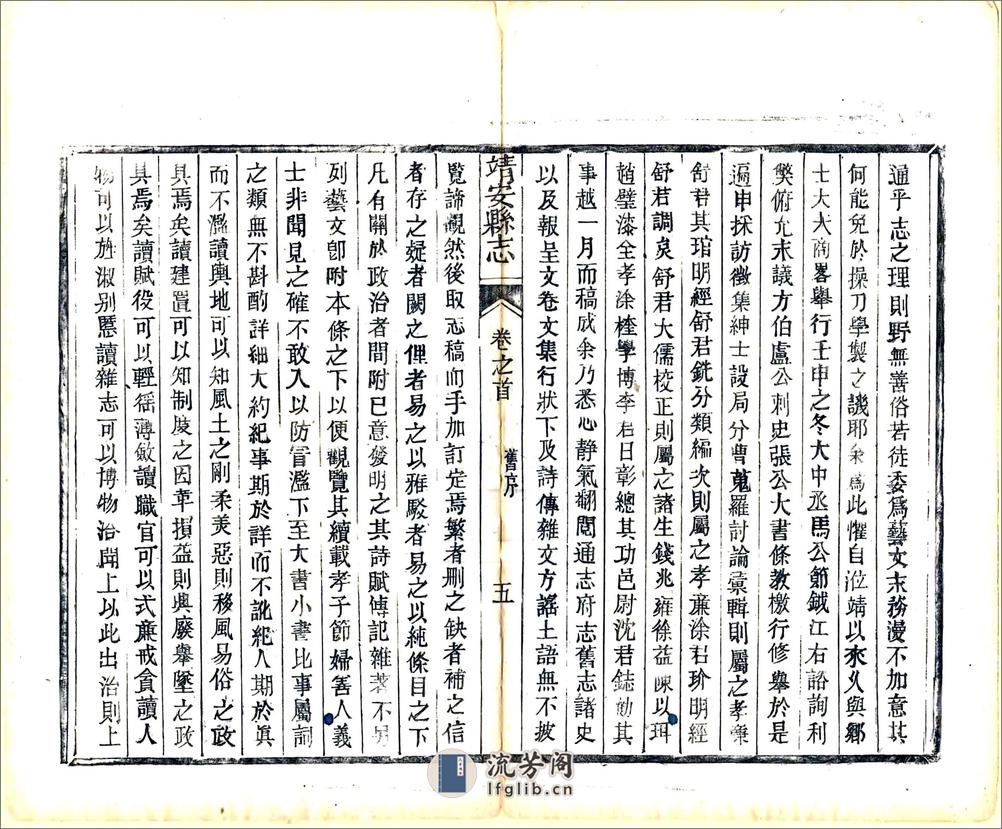 通乎志之理則野無善俗若徒委爲藝文末務漫不加意其
何能免於操刀學製之譏耶余爲此懼自涖靖以來久與鄉
士大夫商畧舉行壬申之冬大中丞馬公節鉞江右諮詢利
獘俯允末議方伯盧公刺史張公大書條教檄行修舉於是
遍申採訪徵集紳士設局分曹蒐羅討論彚輯則屬之孝亷
舒君其琯明經舒君銑分類編次則屬之孝亷涂君玠明經
舒君調奐舒君大儒校正則屬之諸生錢兆雍徐益陳以珥
趙璧漆全孝涂楏學博李君日彰總其功邑尉沈君鋕勷其
事越一月而稿成余乃悉心静氣繙閱通志府志舊志諸史
以及報呈文卷文集行狀下及詩傳雜文方謠土語無不披
靖安縣志
卷之首
舊序
五
覽諦觀然後取志稿而手加訂定焉繁者刪之缺者補之信
者存之疑者闕之俚者易之以雅駁者易之以純條目之下
凡有關於政治者間附已意發明之其詩賦傳記雜著不另
列藝文卽附本條之下以便觀覽其續載孝子節婦善人義
士非聞見之確不敢入以防冒濫下至大書小書比事屬詞
之類無不斟酌詳細大約紀事斯於詳而不訛紀人期於眞
而不濫讀輿地可以知風土之剛柔美惡則移風易俗之政
具焉矣讀建置可以知制度之因革損益則興廢舉墜之政
具焉矣讀賦役可以輕徭薄斂讀職官可以式亷戒貪讀人
物可以旌淑别慝讀雜志可以博物洽聞上以此出治則上
流芳阁
lfglib.cn